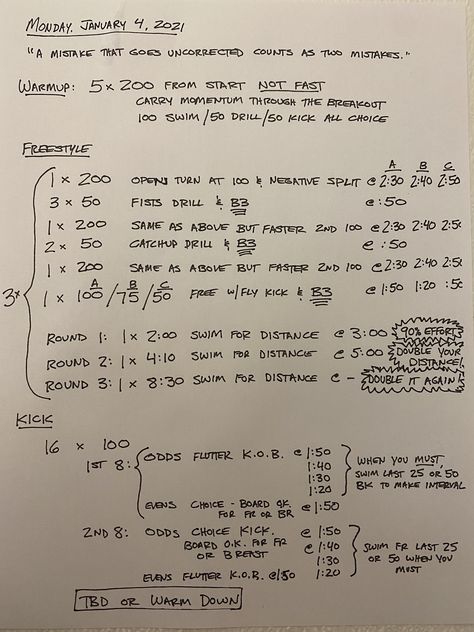 MONDAY, JANUARY 4, 2021
"A MISTAKE THAT GOES UNCORRECTED COUNTS AS TWO MISTAKES."
WARMUP: 5 x 200 FROM START NOT FAST
CARRY MOMENTUM THROUGH THE BREAKOUT
100 SWIM/50 DRILL/50 KICK ALL CHOICE
FREESTYLE
A B C
1 x 200 OPEN TURN AT 100 & NEGATIVE SPLIT @ 2:30 2:40 2:50
3 x 50 FISTS DRILL & B3 @ :50
1 x 200 SAME AS ABOVE BUT FASTER 2ND 100 @ 2:30 2:40 2:50
2 x 50 CATCHUP DRILL & B3 @ :50
1 x 200 SAME AS ABOVE BUT FASTER 2ND 100 @ 2:30 2:40 2:50
A B C
3x 1 x 100/75/50 FREE W/FLY KICK & B3 @ 1:50 1:20 :50
ROUND 1: 1 x 2:00 SWIM FOR DISTANCE @ 3:00 90% EFFORT
ROUND 2: 1 x 4:10 SWIM FOR DISTANCE @ 5:00 DOUBLE YOUR DISTANCE!
ROUND 3: 1 x 8:30 SWIM FOR DISTANCE @ - DOUBLE IT AGAIN!
KICK
16 x 100
1ST 8: ODDS FLUTTER K.O.B. @ 1:50
1:40
1:30
1:20
WHEN YOU MUST,
SWIM LAST 25 OR 50
BK TO MAKE INTERVAL
EVENS CHOICE - BOARD O.K. @ 1:50
FOR FR OR BR
2ND 8: ODDS CHOICE KICK. @ 1:50
BOARD O.K. FOR FR @ 1:40
OR BREAST 1:30
EVENS FLUTTER K.O.B. @ 1:50 1:20
SWIM FR LAST 25
OR 50 WHEN YOU
MUST
TBD OR WARM DOWN